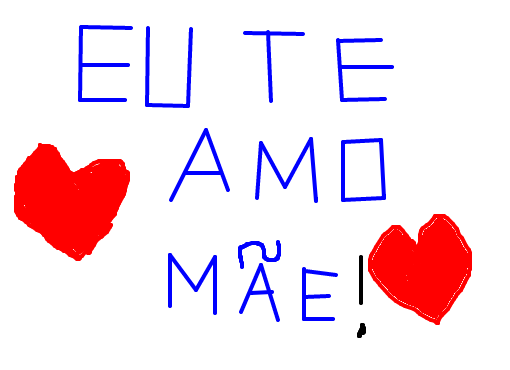 EU TE
AMO
MÃE!